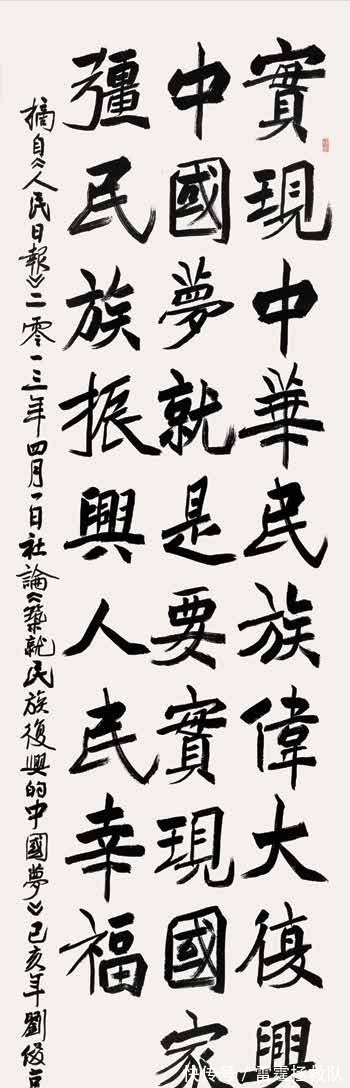 實現中華民族偉大復興
中國夢就是要實現國家
彊民族振興人民幸福
摘自《人民日報》二零一三年四月一日社論《築就民族復興的中國夢》己亥年劉俊
快传号/雷霆拯救队